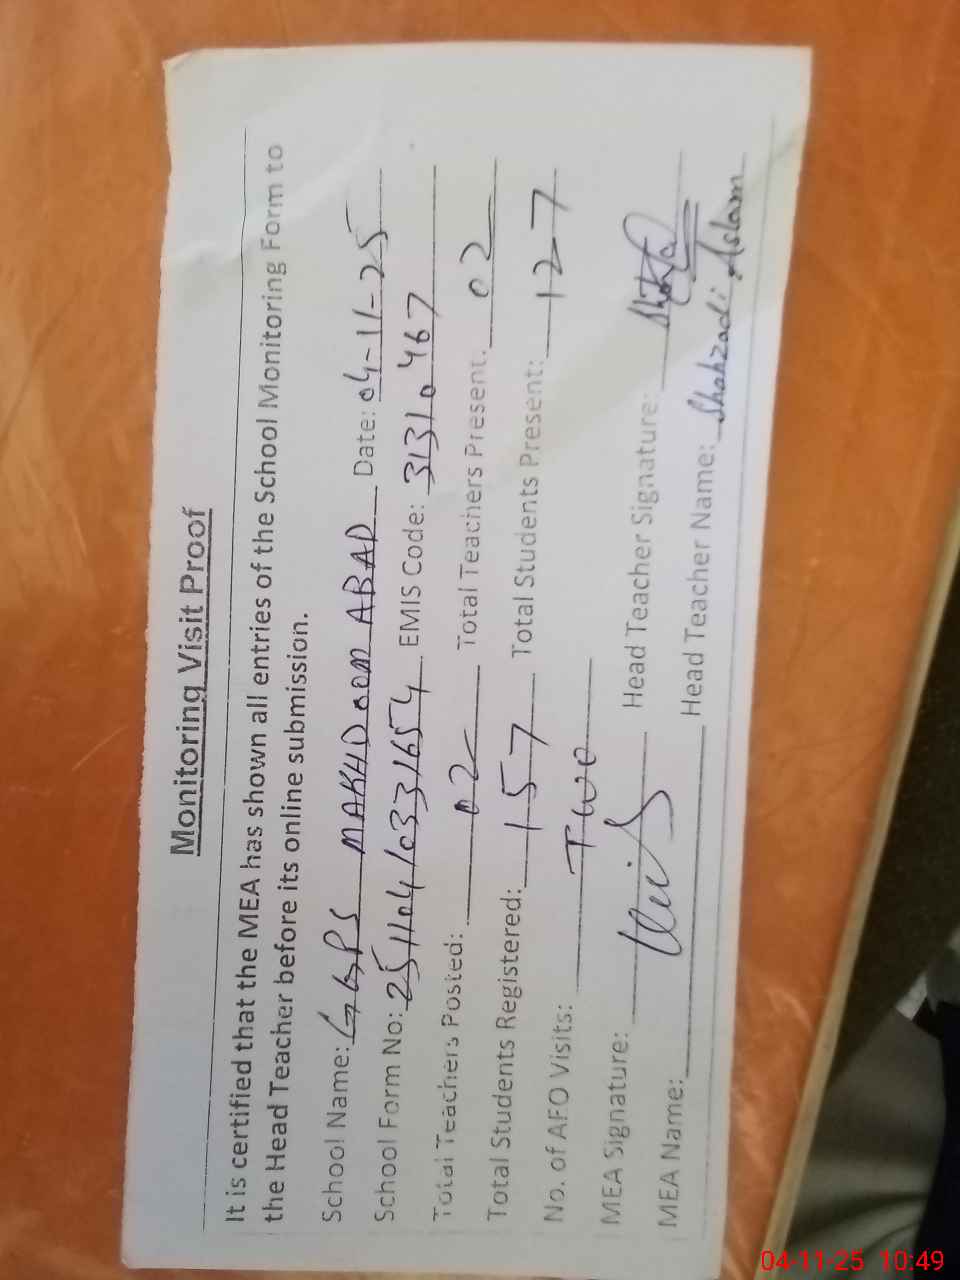 Monitoring Visit Proof
It is certified that the MEA has shown all entries of the School Monitoring Form to
the Head Teacher before its online submission.
School Name: GGPS MAKHDOOM ABAD Date: 04-11-25
School Form No: 251104103316 54 EMIS Code: 31310467
Total Teachers Posted: 02 Total Teachers Present: 02
Total Students Registered: 157 Total Students Present: 127
No. of AFO Visits: Two
MEA Signature: Head Teacher Signature:
MEA Name: Head Teacher Name: Shahzadi Aslam
04-11-25 10:49